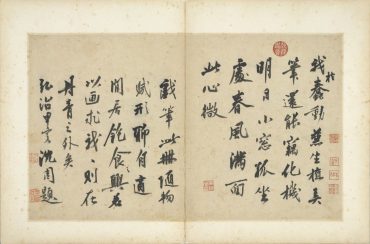 我於蠢動兼生植弄
筆還能竊化機
明日小窗孤坐
處春風滿面
此心微
戲筆此冊隨物
賦形聊自適
閒居飽食之興若
以画求我〻則在
丹青之外矣
弘治甲寅沈周題